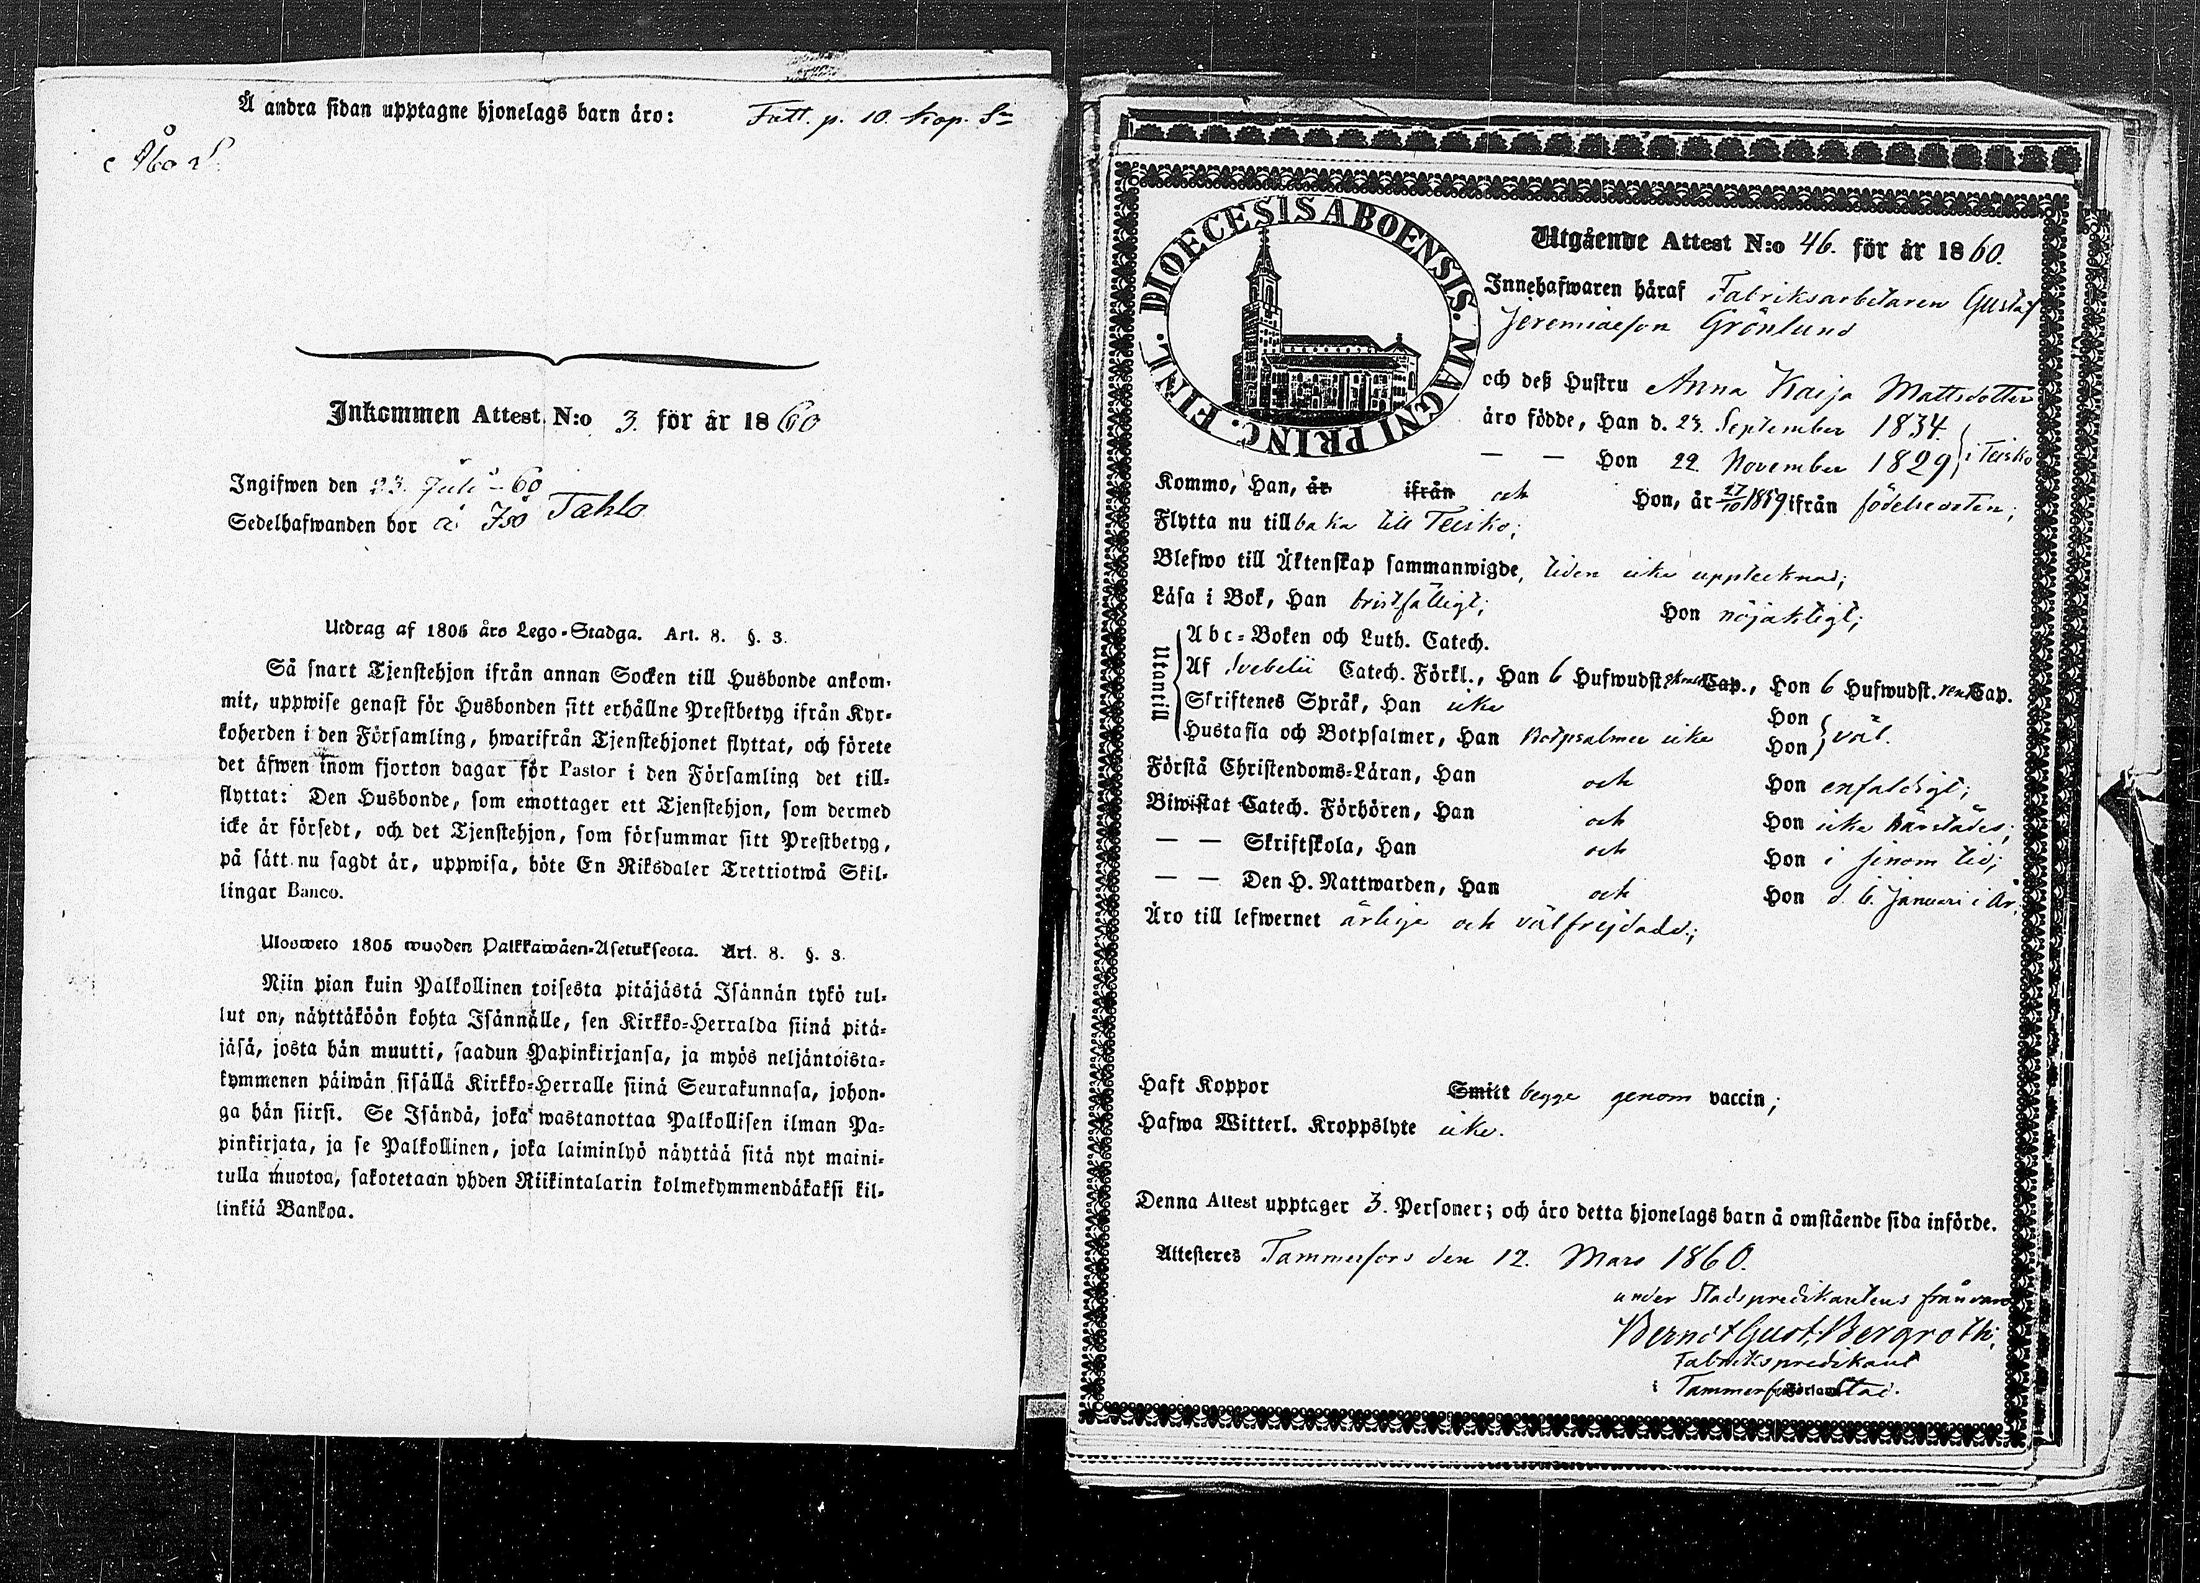 Å andra sidan upptagne hjonelags barn äro: Fatt. p. 10. Kop. Sr
Åbo
Inkommen Attest N:o 3 för år 1860
Ingifwen den 23. Juli 60
Sedelhafwanden bor å Iso Tahlo
Utdrag af 1805 års Lego-Stadga. Art. 8. §. 3.
Så snart Tjenstehjon ifrån annan Socken till Husbonde ankom-
mit, uppwise genast för Husbonden sitt erhållne Prestbetyg ifrån Kyr-
koherden i den Församling, hwarifrån Tjenstehjonet flyttat, och förete
det äfwen inom fjorton dagar för Pastor i den Församling det till-
flyttat: Den Husbonde, som emottager ett Tjenstehjon, som dermed
icke är försedt, och det Tjenstehjon, som försummar sitt Prestbetyg,
på sätt nu sagdt är, uppwisa, böte En Riksdaler Trettiotwå Skil-
lingar Banco.
Ulosweto 1805 wuoden Palkkawäen-Asetuksesta. Art. 8. §. 3.
Niin pian kuin Palkollinen toisesta pitäjästä Isännän tykö tul-
lut on, näyttäköön kohta Isännälle, sen Kirkko-Herralda siinä pitä-
jäsä, josta hän muutti, saadun Papinkirjansa, ja myös neljäntoista-
kymmenen päiwän sisällä Kirkko-Herralle siinä Seurakunnasa, johon-
ga hän siirsi. Se Isändä, joka wastanottaa Palkollisen ilman Pa-
pinkirjata, ja se Palkollinen, joka laiminlyö näyttää sitä nyt maini-
tulla muotoa, sakotetaan yhden Riikintalarin kolmekymmendäkaksi kil-
linkiä Bankoa.
DIOECESIS ABOENSIS. MAGNI PRINC. FINL.
Utgående Attest N:o 46. för år 1860.
Innehafwaren häraf Fabriksarbetaren Gustaf
Jeremiaeson Grönlund
och deß Hustru Anna Kaija Mattsdotter
äro födde, Han d. 23. September 1834.
— — Hon 22 November 1829 } i Teisko
Kommo, Han, år ifrån och Hon, år 27/10 1859 ifrån födelseorten;
Flytta nu tillbaka till Teisko;
Blefwo till Äktenskap sammanwigde, tiden icke upptecknad;
Läsa i Bok, Han bristfälligt; Hon nöjaktigt;
Utantill
Abc-Boken och Luth. Catech.
Af Svebelii Catech. Förkl., Han 6 Hufwudst. Cap., Hon 6 Hufwudst. Cap.
Skriftenes Språk, Han icke Hon
Hustafla och Botpsalmer, Han Botpsalmer icke Hon } väl.
Förstå Christendoms-Läran, Han och Hon enfaldigt;
Biwistat Catech. Förhören, Han och Hon icke härstädes;
— — Skriftskola, Han och Hon i sinom tid;
— — Den H. Nattwarden, Han och Hon d. 6. Januari i År;
Äro till lefwernet ärliga och välfrejdade;
Haft Koppor Smitt begge genom vaccin;
Hafwa Witterl. Kroppslyte icke.
Denna Attest upptager 3. Personer; och äro detta hjonelags barn å omstående sida införde.
Attesteres Tammerfors den 12. Mars 1860.
under Stadspredikantens frånvaro
Berndt Gust. Bergroth;
Fabrikspredikant
i Tammerfors Stad.